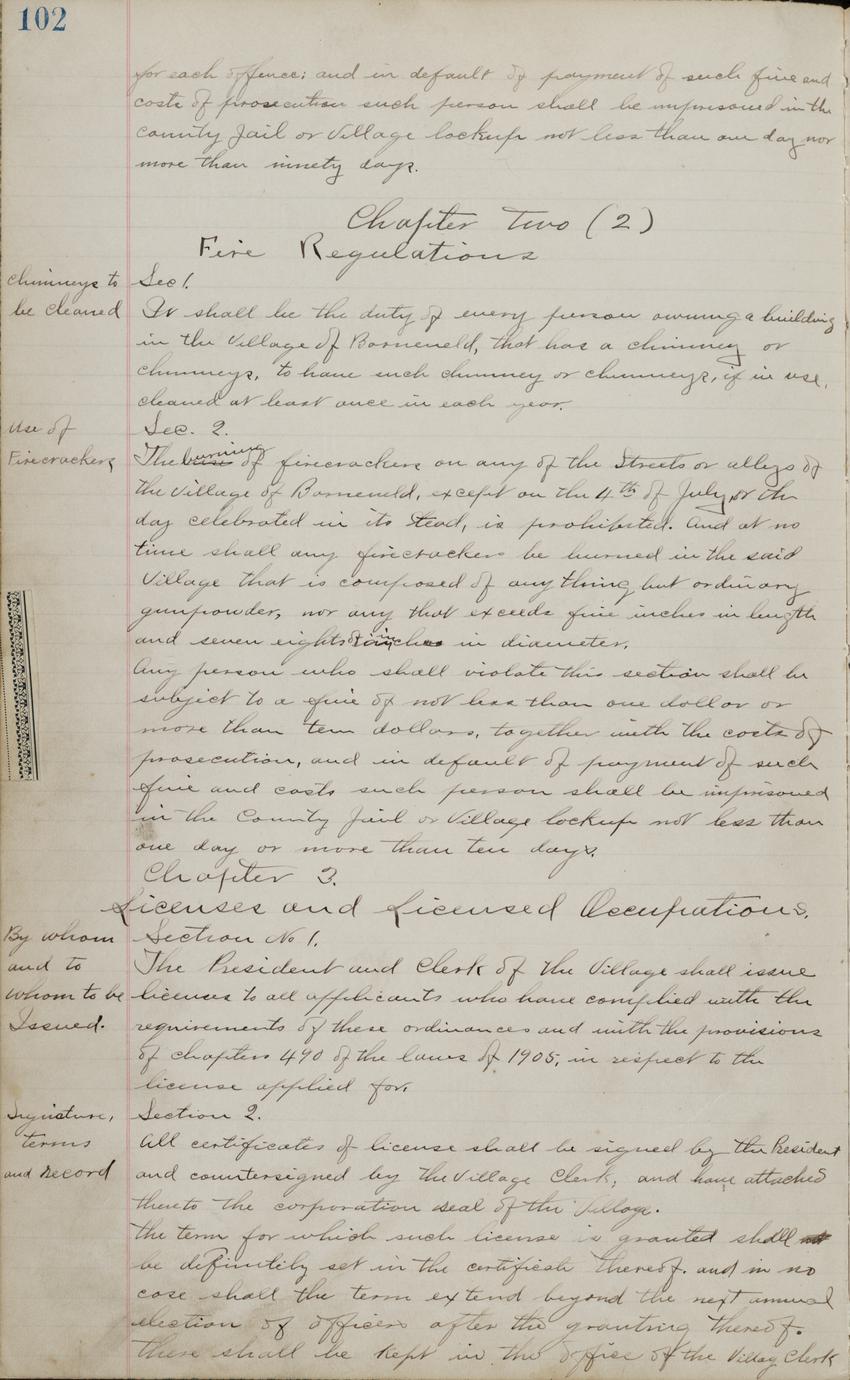 102
for each offence; and in default of payment of such fine and
costs of prosecution such person shall be imprisoned in the
County Jail or Village lockup not less than one day nor
more than ninety days.
Chapter Two (2)
Fire Regulations
Chimneys to
be cleaned
Sec 1.
It shall be the duty of every person owning a building
in the Village of Barneveld, that has a chimney or
chimneys, to have such chimney or chimneys, if in use,
cleaned at least once in each year.
Use of
Firecrackers
Sec. 2.
The burning of firecrackers on any of the Streets or alleys of
the Village of Barneveld, except on the 4th of July, or the
day celebrated in its stead, is prohibited. And at no
time shall any firecrackers be burned in the said
Village that is composed of any thing but ordinary
gunpowder, nor any that exceeds five inches in length
and seven eights inches in diameter.
Any person who shall violate this section shall be
subject to a fine of not less than one dollar or
more than ten dollars, together with the costs of
prosecution, and in default of payment of such
fine and costs such person shall be imprisoned
in the County Jail or Village lockup not less than
one day or more than ten days.
Chapter 3.
Licenses and Licensed Occupations.
By whom
and to
whom to be
Issued.
Section No 1.
The President and Clerk of the Village shall issue
licenses to all applicants who have complied with the
requirements of these ordinances and with the provisions
of chapters 490 of the laws of 1905, in respect to the
license applied for.
Signature,
terms
and Record
Section 2.
All certificates of license shall be signed by the President
and countersigned by the Village Clerk, and have attached
thereto the corporation seal of the Village.
The term for which such license is granted shall
be definitely set in the certificate thereof. and in no
case shall the term extend beyond the next annual
election of officers after the granting thereof.
There shall be kept in the office of the Village Clerk